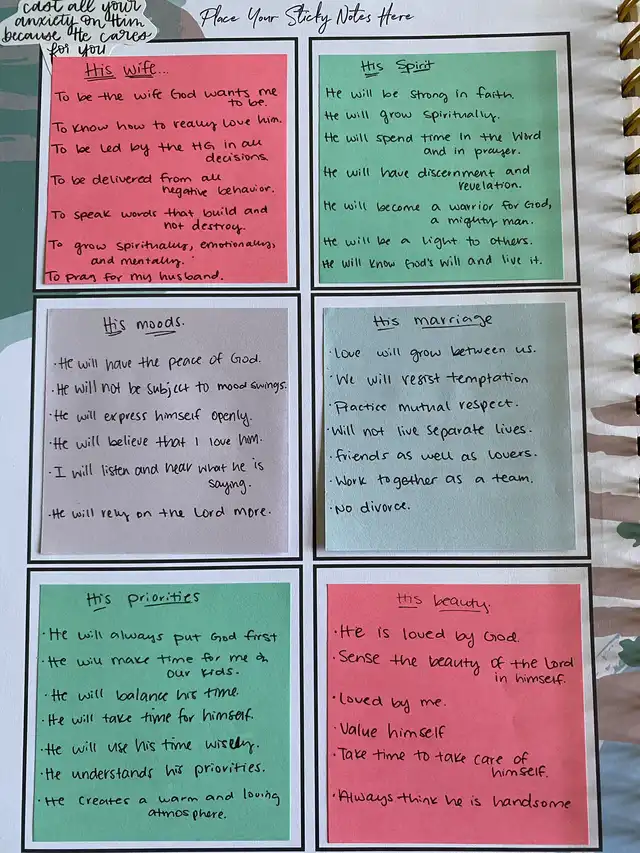 cast all your
anxiety on Him
because He cares
for you
Place Your Sticky Notes Here
His wife...
To be the wife God wants me
to be.
To know how to really love him.
To be led by the HG in all
decisions.
To be delivered from all
negative behavior.
To speak words that build and
not destroy.
To grow spiritually, emotionally,
and mentally.
To pray for my husband.
His Spirit
He will be strong in faith.
He will grow spiritually.
He will spend time in the Word
and in prayer.
He will have discernment and
revelation.
He will become a warrior for God,
a mighty man.
He will be a light to others.
He will know God's will and live it.
His moods.
·He will have the peace of God.
·He will not be subject to mood swings.
·He will express himself openly.
·He will believe that I love him.
·I will listen and hear what he is
saying.
·He will rely on the Lord more.
His marriage
·Love will grow between us.
·We will resist temptation
·Practice mutual respect.
·Will not live separate lives.
·friends as well as lovers.
·Work together as a team.
·No divorce.
His priorities
·He will always put God first
·He will make time for me &
our kids.
·He will balance his time.
·He will take time for himself.
·He will use his time wisely.
·He understands his priorities.
·He creates a warm and loving
atmosphere.
His beauty.
·He is loved by God.
·Sense the beauty of the Lord
in himself.
·Loved by me.
·Value himself
·Take time to take care of
himself.
·Always think he is handsome